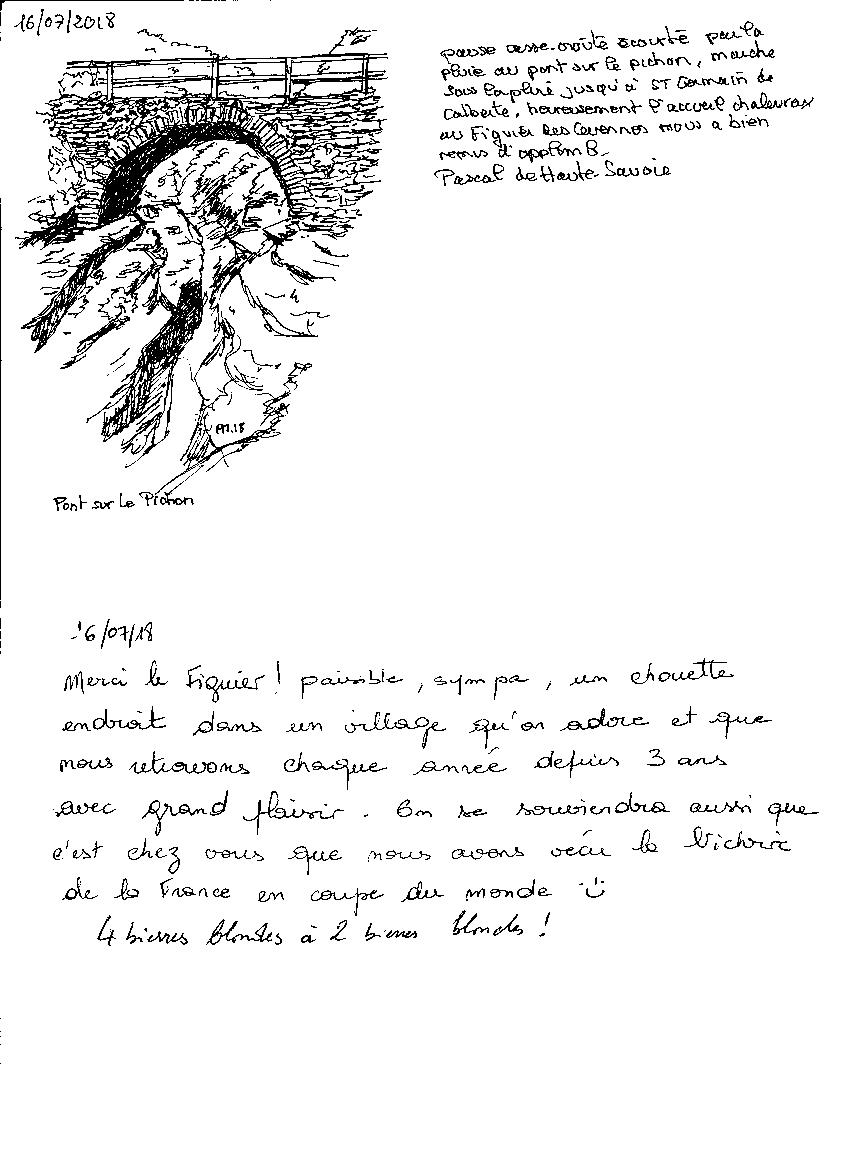 16/07/2018
pause casse-croûte écourté par la
pluie au pont sur le pichon, marche
sous la pluie jusqu'à ST Germain de
Calberte, heureusement l'accueil chaleureux
au Figuier des Cevennes nous a bien
remis d'applomb.
Pascal de Haute Savoie
AM.18
Pont sur Le Pichon
16/07/18
Merci le Figuier! paisible, sympa, un chouette
endroit dans un village qu'on adore et que
nous retrouvons chaque année depuis 3 ans
avec grand plaisir. On se souviendra aussi que
c'est chez vous que nous avons vécu la Victoire
de la France en coupe du monde
4 bierres blondes à 2 bierres blondes!